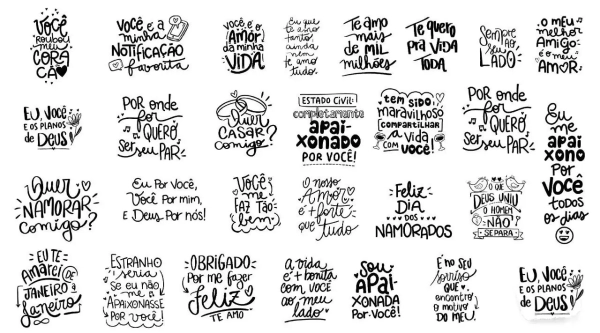 VOCÊ
ROUBOU
meu
CORA
ÇÃO
VOCÊ e a
minha
NOTIFICAÇÃO
favorita
VOCÊ, é o
AMOR
da minha
VIDA!
Eu que
te amo
tanto
ainda
nem
te amo
tudo.
Te amo
mais
de MIL
milhões
Te quero
PRA VIDA
TODA
Sempre
ao seu
LADO
O meu
melhor
Amigo
é o meu
AMOR
EU, VOCÊ
E OS PLANOS
de DEUS
POR onde
for
QUERO,
Ser seu PAR
Quer
CASAR
comigo?
ESTADO CIVIL:
completamente
APAI-
XONADO
POR VOCÊ!
tem sido
maravilhoso
compartilhar
a vida
com VOCÊ!
POR onde
for
QUERO,
Ser seu PAR
Eu
me
apai
xono
Por
Você
todos
os dias
Quer
NAMORAR
comigo?
Eu Por Você,
Você Por mim,
E Deus Por nós!
Você
me
FAZ TÃO
bem
O nosso
Amor
é + forte
que tudo
Feliz
DIA
DOS
NAMORADOS
O QUE
DEUS UNIU
O HOMEM
NÃO
SEPARA
EU TE
Amarei DE
JANEIRO A
Janeiro
ESTRANHO
seria
Se eu não
me
APAIXONASSE
Por você!
OBRIGADO
Por me fazer
Feliz
TE AMO
a vida
é + bonita
com você
ao meu
lado
Sou
APAI
XONADA
Por Você!
É no seu
sorriso
QUE
encontro
o motivo
DO MEU.
EU, VOCÊ
E OS PLANOS
de DEUS